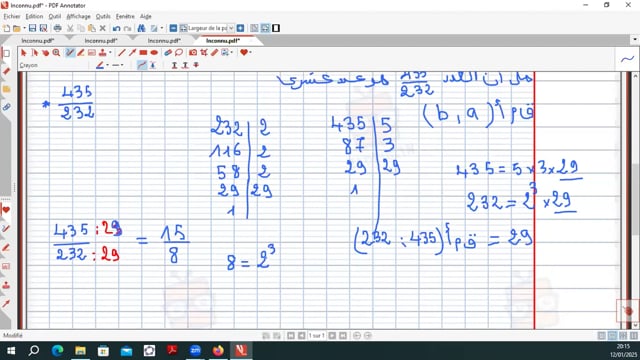 Inconnu.pdf* - PDF Annotator
Fichier Edition Outil Affichage Outils Fenêtre Aide
Largeur de la p
Inconnu.pdf* Inconnu.pdf* Inconnu.pdf* Inconnu.pdf*
Crayon
هل ان العدد 435/232 هو عدد عشري
* 435/232
ق م أ (b , a)
232 | 2
116 | 2
58 | 2
29 | 29
1
435 | 5
87 | 3
29 | 29
1
435 = 5 × 3 × 29
232 = 2³ × 29
ق م أ (232 ; 435) = 29
435 : 29 / 232 : 29 = 15/8
8 = 2³
1 sur 1
Modifié
20:15
12/01/2025